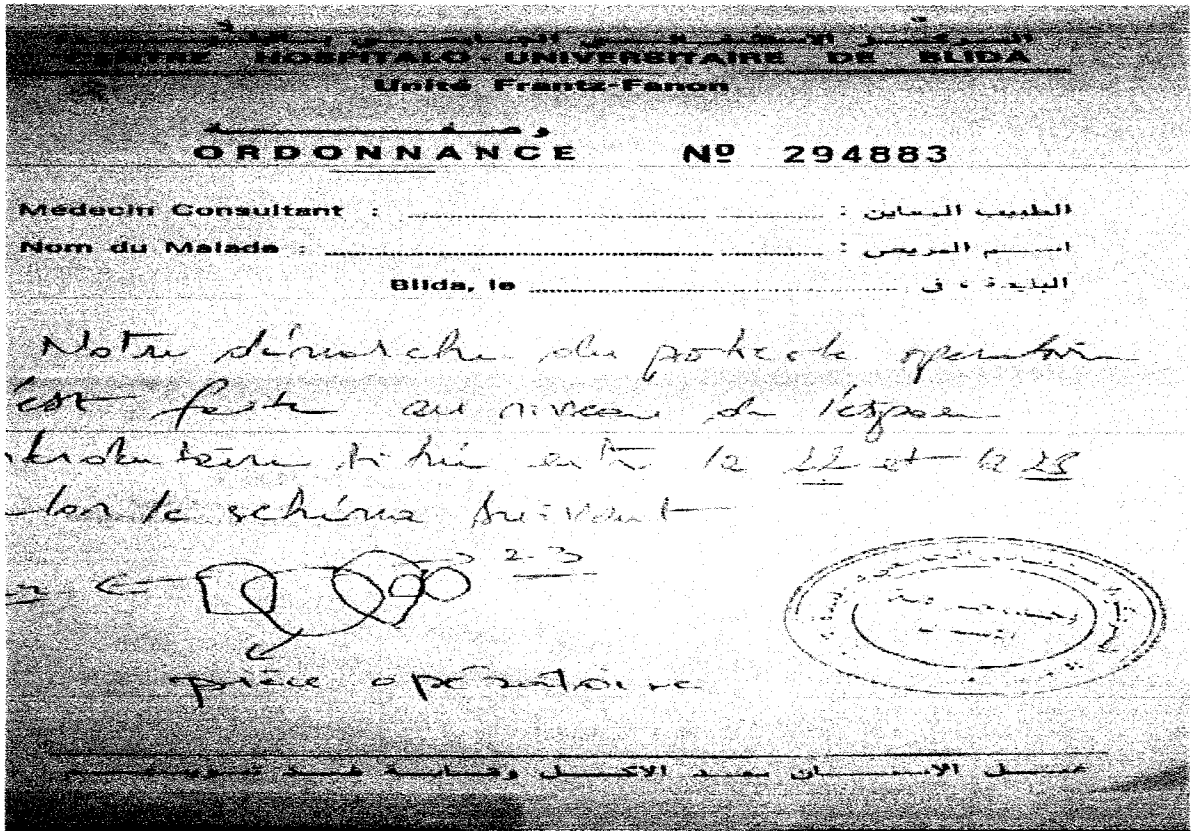 المركز الاستشفائي الجامعي بالبليدة
CENTRE HOSPITALO-UNIVERSITAIRE DE BLIDA
Unité Frantz-Fanon
وصفة
ORDONNANCE Nº 294883
Médecin Consultant : الطبيب المعاين :
Nom du Malade : اسم المريض :
Blida, le البليدة ، في
Notre démarche du protocole operatoire
est faite au niveau de l'espace
entre la 22 et la 28
schéma suivant
2-3
pièce opératoire
غسل الاسنان بعد الاكل وقاية ضد تسويسهم